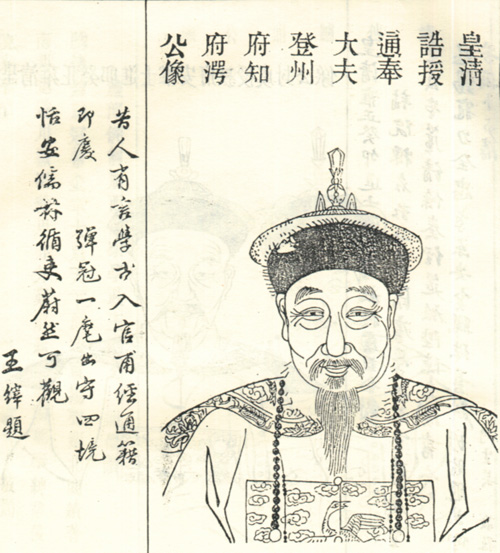 皇清
誥授
通奉
大夫
登州
府知
府湂
公像
昔人有言學古入官甫經通籍
即慶 彈冠一麾出守四境
恬安儒林循吏蔚然可觀
王 題